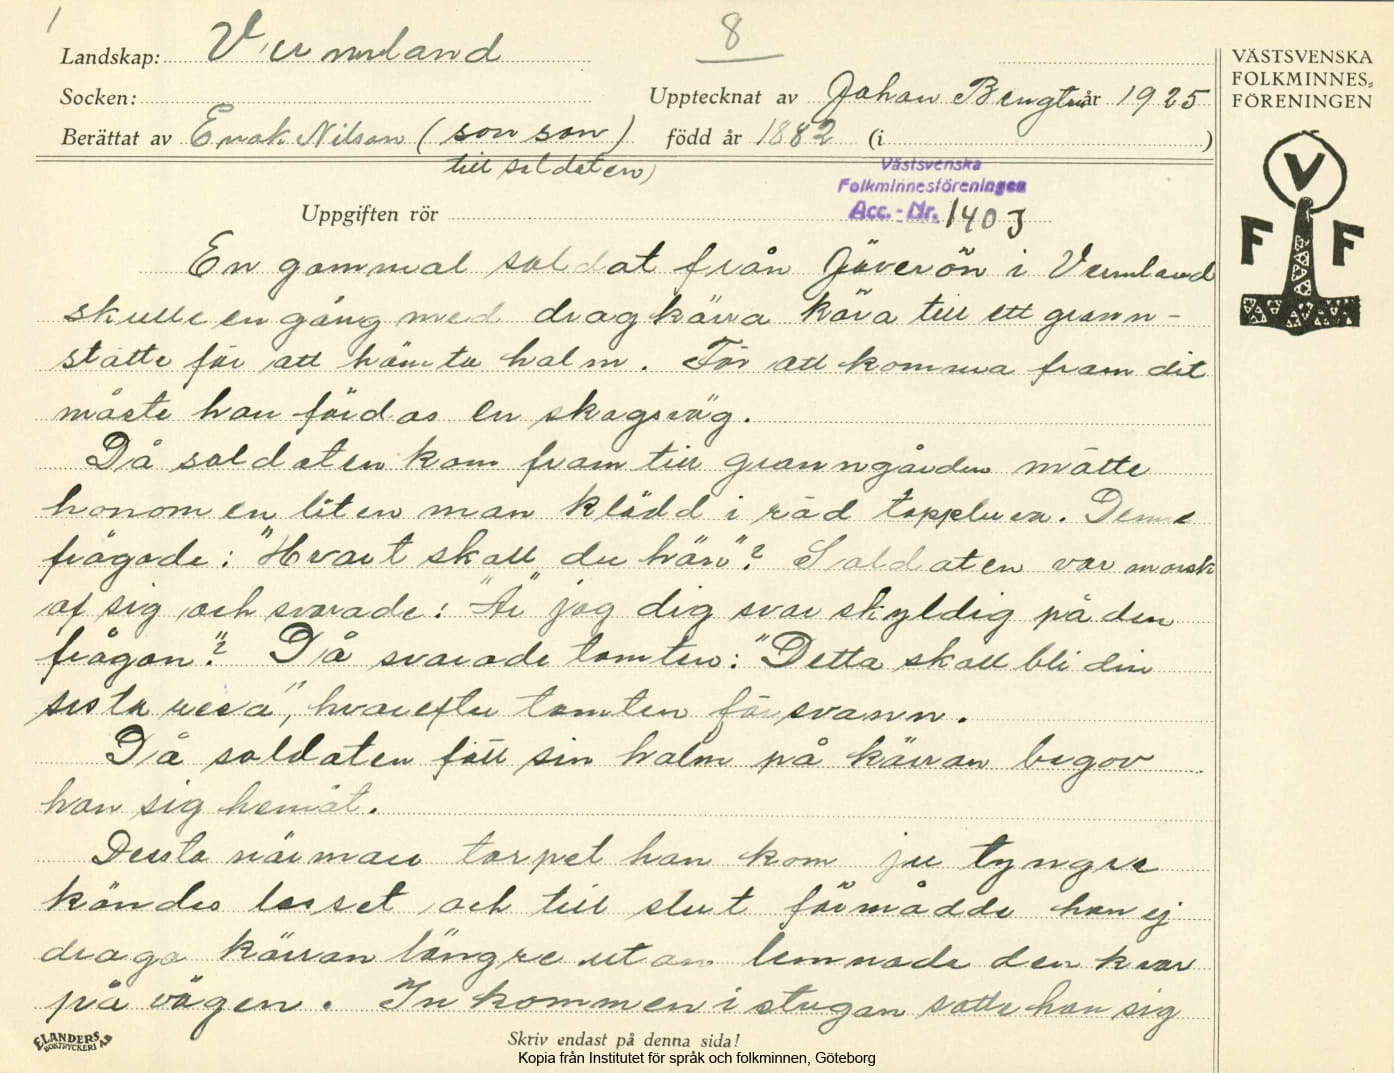 Landskap: Vermland
8
Socken:
Upptecknat av Johan Bengtson år 1925
Berättat av Enok Nilson (sonson till soldaten)
född år 1882 (i )
Västsvenska
Folkminnesföreningen
Acc. - Nr. 1403
Uppgiften rör
VÄSTSVENSKA
FOLKMINNES-
FÖRENINGEN
V
F F
En gammal soldat från Jöverön i Vermland
skulle en gång med dragkärra köra till ett grann-
ställe för att hämta halm. För att komma fram dit
måste han färdas en skogsväg.
Då soldaten kom fram till granngården mötte
honom en liten man klädd i röd toppluva. Denne
frågade: "Hvart skall du hän"? Soldaten var morsk
af sig och svarade: "Är jag dig svar skyldig på den
frågan"? Då svarade tomten: "Detta skall bli din
sista resa", hvarefter tomten försvann.
Då soldaten fått sin halm på kärran begav
han sig hemåt.
Desto närmare torpet han kom ju tyngre
kändes lasset och till slut förmådde han ej
draga kärran längre utan lemnade den kvar
på vägen. Inkommen i stugan satte han sig
ELANDERS
BOKTRYCKERI AB
Skriv endast på denna sida!
Kopia från Institutet för språk och folkminnen, Göteborg